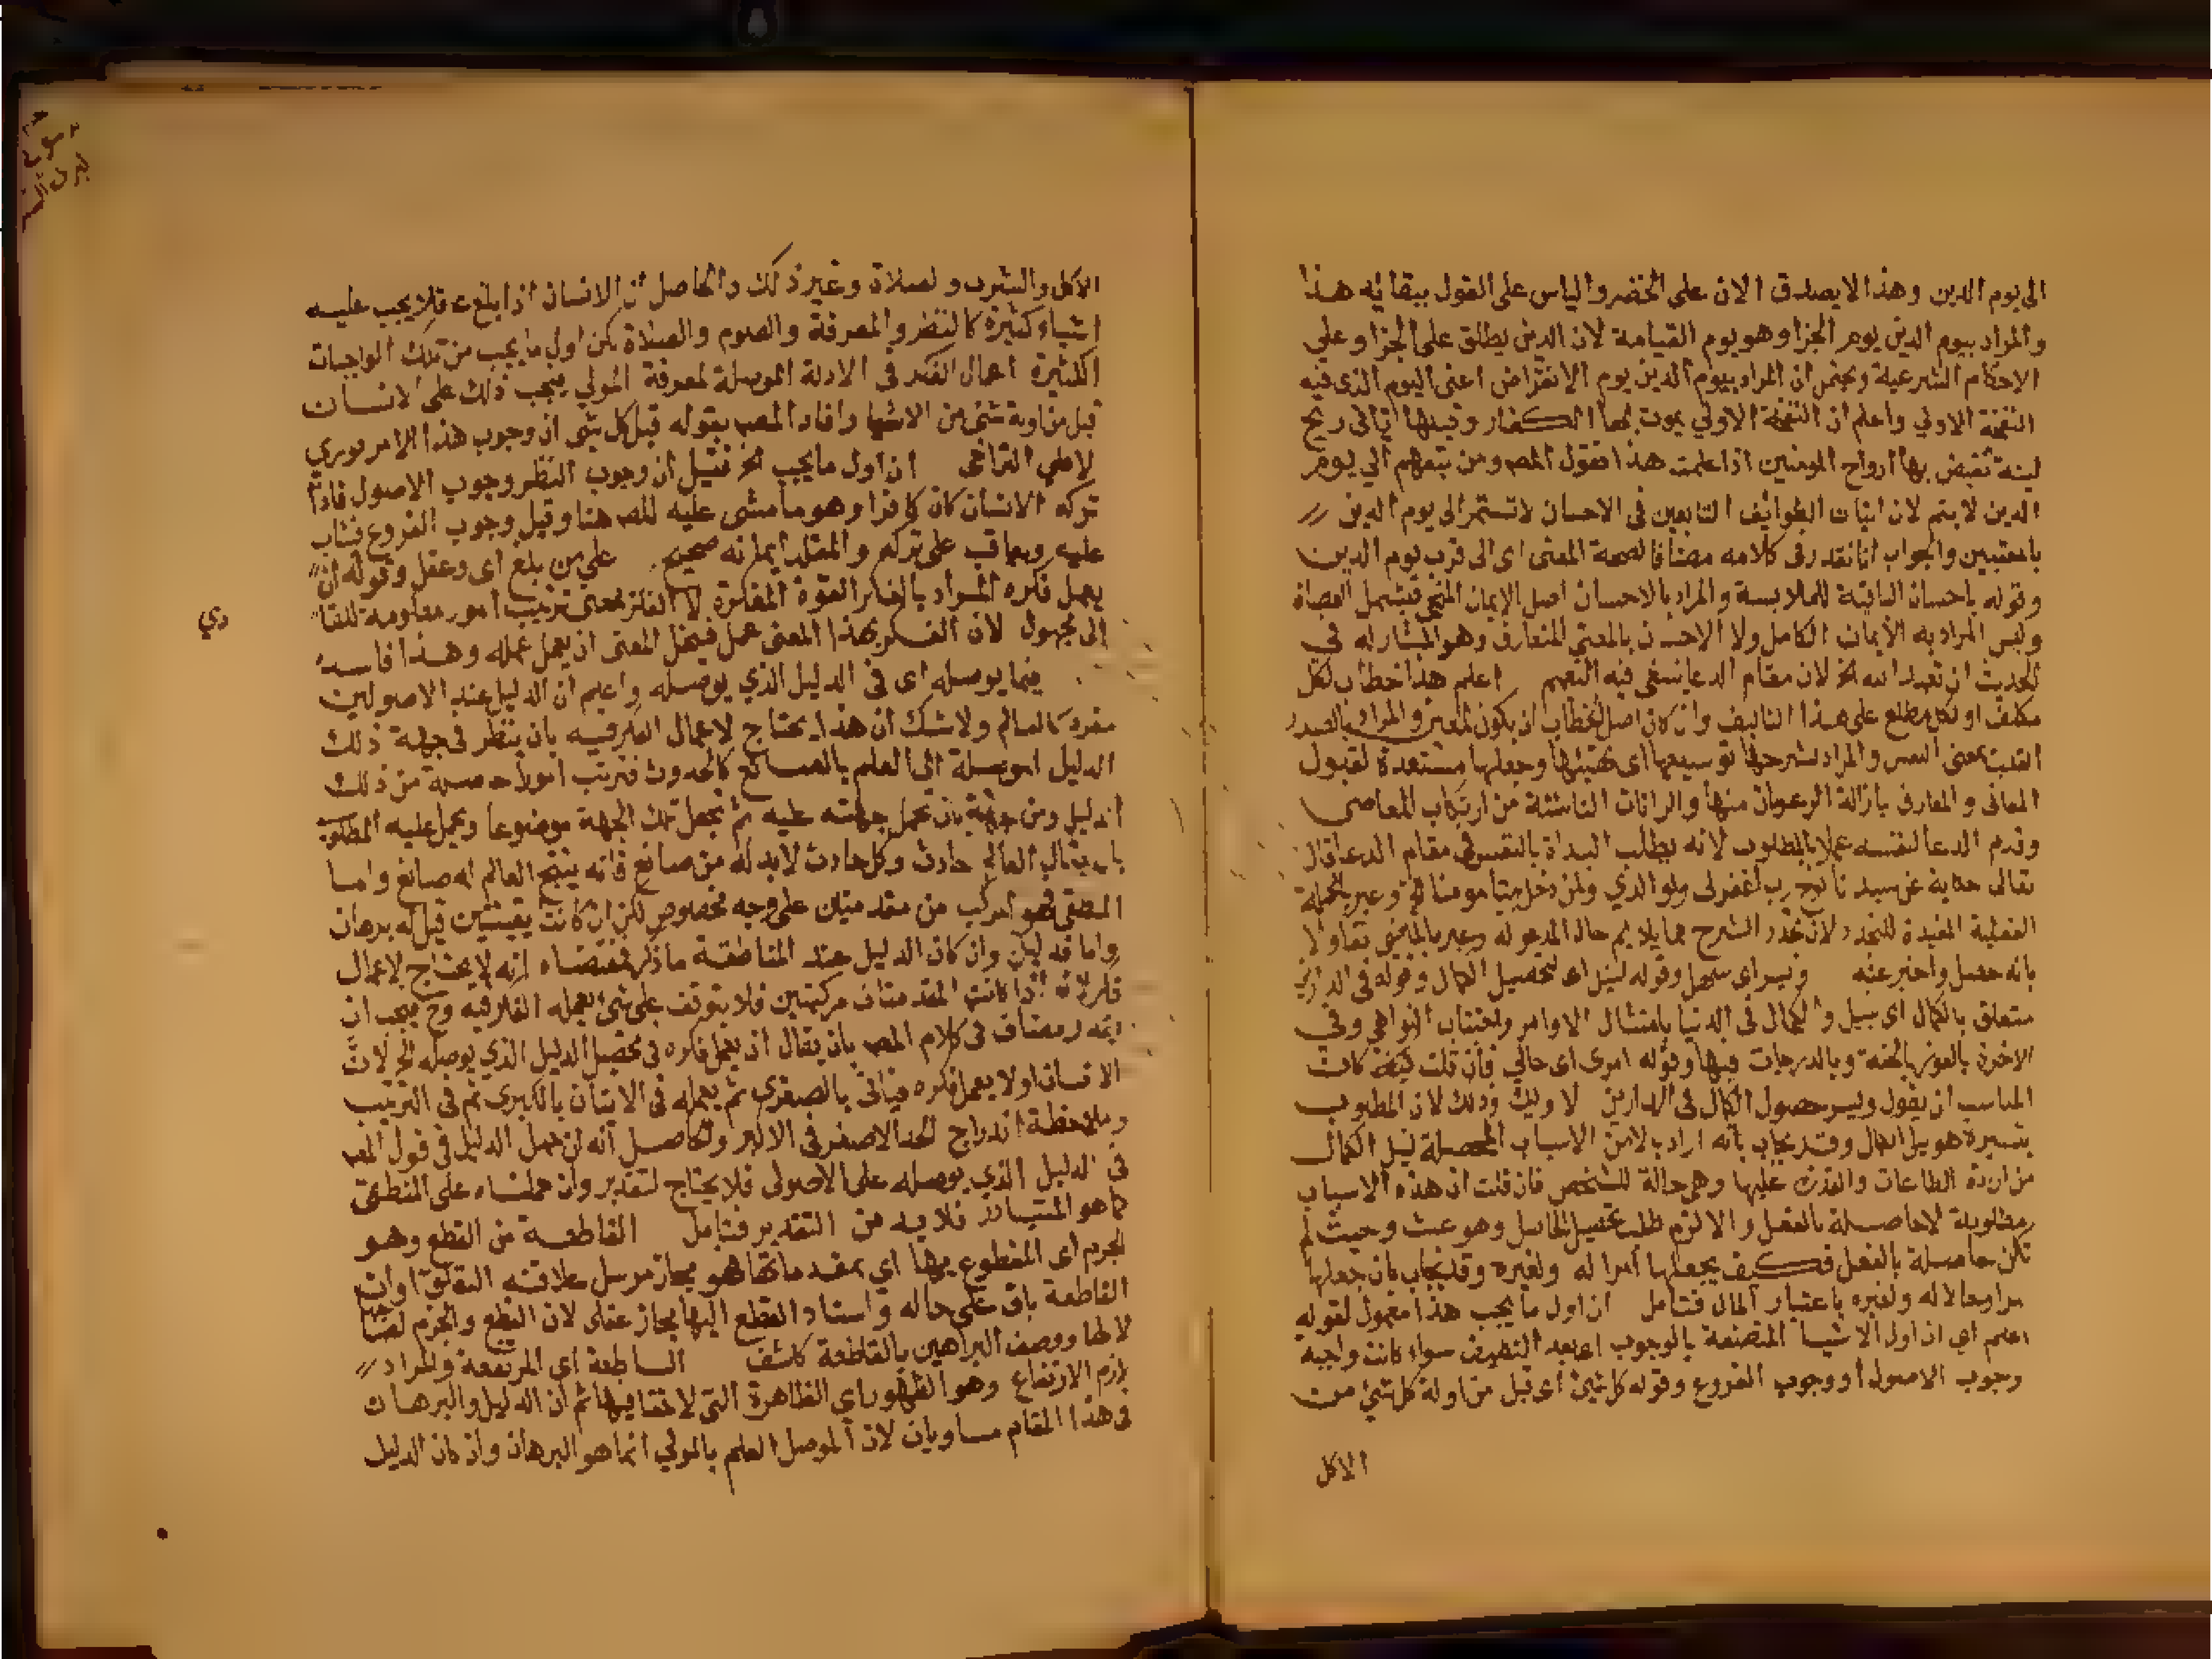 الى يوم الدين وهذا لا يصدق الان على الخضر والياس على القول ببقائه هذا
والمراد بيوم الدين يوم الجزا وهو يوم القيامة لان الدين يطلق على الجزا وعلى
الاحكام الشرعية ويحتمل ان المراد بيوم الدين يوم الانقراض اعنى اليوم الذى فيه
النفخة الاولي واعلم ان النفخة الاولي يموت بها الكفار وقبلها تاتى ريح
لينة تقبض بها ارواح المومنين اذا علمت هذا فقول المص ومن تبعهم الي يوم
الدين لا يتم لان اتيان الطوائف التابعين فى الاحسان لا تستمر الى يوم الدين
والجواب انا نقدر فى كلامه مضافا لصحة المعنى اى الى قرب يوم الدين
وقوله باحسان الباء للملابسة والمراد بالاحسان اصل الايمان المنجى فيشمل العصاة
وليس المراد به الايمان الكامل ولا الاحسان بالمعنى المتعارف وهو المشار له فى
الحديث ان تعبد الله الخ لان مقام الدعا ينبغى فيه التعميم اعلم هذا خطاب لكل
مكلف او لكل مطلع على هذا التاليف وان كان اصل الخطاب ان يكون لمعين والمراد بالصدر
القلب بمعنى النفس والمراد بشرحها توسيعها اى تهيئتها وجعلها مستعدة لقبول
المعانى والمعارف بازالة الرعونات منها والرانات الناشئة من ارتكاب المعاصى
وقدم الدعا لنفسه عملا بالمطلوب لانه يطلب البداة بالنفس فى مقام الدعا قال
تعالى حكاية عن سيدنا نوح رب اغفر لى ولوالدي ولمن دخل بيتي مومنا الخ وعبر بالجملة
الفعلية المفيدة للتجدد لان تجدد الشرح مما يلايم حال المدعو له وعبر بالماضى تفاولا
بانه حصل واخبر عنه ويسر اى سهل وقوله لنيل اى لتحصيل الكمال وقوله فى الدارين
متعلق بالكمال اى بنيل والكمال فى الدنيا بامتثال الاوامر واجتناب النواهى وفى
الاخرة بالفوز بالجنة وبالدرجات فيها وقوله امرى اى حالي فان قلت كان
المناسب ان يقول ويسر حصول الكمال فى الدارين لا ولك وذلك لان المطلوب
تيسيره هو نيل الكمال وقد يجاب بانه اراد بالامر الاسباب المحصلة لنيل الكمال
من ارادة الطاعات والقدرة عليها وهى حالة للشخص فان قلت ان هذه الاسباب
مطلوبة لا حاصلة بالفعل والا لزم طلب تحصيل الحاصل وهو عبث وحيث لم
تكن حاصلة بالفعل فكيف يجعلها أمرا له ولغيره وقد يجاب بان جعلها
امرا وحالا له ولغيره باعتبار المال فتامل ان اول ما يجب هذا معمول لقوله
اعلم اي ان اول الاشيا المتصفة بالوجوب اى بعد التكليف سواء كانت واجبة
وجوب الاصول أو وجوب الفروع وقوله كل شئ أى قبل مناولة كل شئ من
الاكل
الاكل والشرب والصلاة وغير ذلك والحاصل أن الانسان اذا بلغ فلا يجب عليه
اشياء كثيرة كالنظر والمعرفة والصوم والصلاة لكن اول ما يجب من تلك الواجبات
الكثيرة اعمال الفكر فى الادلة الموصلة لمعرفة المولي فيجب ذلك على الانسان
قبل مناولة شئ من الاشيا وافاد المص بقوله قبل كل شئ ان وجوب هذا الامر فورى
لا على التراخى ان اول ما يجب الخ فقيل ان وجوب النظر وجوب الاصول فاذا
تركه الانسان كان كافرا وهو ما مشى عليه المص هنا وقيل وجوب الفروع فيثاب
عليه ويعاقب على تركه والمقلد ايمانه صحيح على من بلغ اى وعقل وقوله ان
يعمل فكره المراد بالفكر القوة المفكرة لا الفكر بمعنى ترتيب امور معلومة
الى مجهول لان الفكر بهذا المعنى عمل فينحل المعنى ان يعمل عمله وهذا فاسد
دي
فيما يوصله اى فى الدليل الذي يوصله واعلم ان الدليل عند الاصوليين
مفرد كالعالم ولا شك ان هذا يحتاج لاعمال الفكر فيه بان ينظر فى جهة ذلك
الدليل الموصلة الى العلم بالصانع كالحدوث فترتب امورا حاصلة من ذلك
الدليل ومن جهته بان تحمل جهته عليه ثم تجعل تلك الجهة موضوعا ويحمل عليه المطلوب
بان يقال العالم حادث وكل حادث لا بد له من صانع فانه ينتج العالم له صانع واما
المنطقى فهو المركب من مقدمتين على وجه مخصوص لكن ان كانت يقينيتين قيل له برهان
واما فدليل وان كان الدليل عند المناطقة ما ذكر فمقتضاه انه لا يحتاج لاعمال
فكره اذا كانت المقدمتان مركبتين فلا يتوقف على شئ يعمله الفكر فيه وح فيجب ان
يقدر مضاف فى كلام المص بان يقال ان يعمل فكره فى تحصيل الدليل الذي يوصله الخ لان
الانسان اولا يعمل فكره فياتى بالصغرى ثم يعمله فى الاتيان بالكبرى ثم فى الترتيب
وملاحظة اندراج الحد الاصغر فى الاكبر والحاصل أنه ان حمل الدليل فى قول المص
فى الدليل الذي يوصله على الاصولى فلا يحتاج لتقدير وان حملناه على المنطقى
كما هو المتبادر فلا بد من التقدير فتامل القاطعة من القطع وهو
الجزم اى المقطوع بها اي بمقدماتها فهو مجاز مرسل علاقته التعلق او ان
القاطعة باق على حاله واسناد القطع اليها مجاز عقلى لان القطع والجزم
لا لها ووصف البراهين بالقاطعة كاشف الساطعة اى المرتفعة والمراد
لازم الارتفاع وهو الظهور اى الظاهرة التى لا خفا فيها ثم ان الدليل والبرهان
فى هذا المقام مساويان لان الموصل العلم بالمولي انما هو البرهان وان كان الدليل